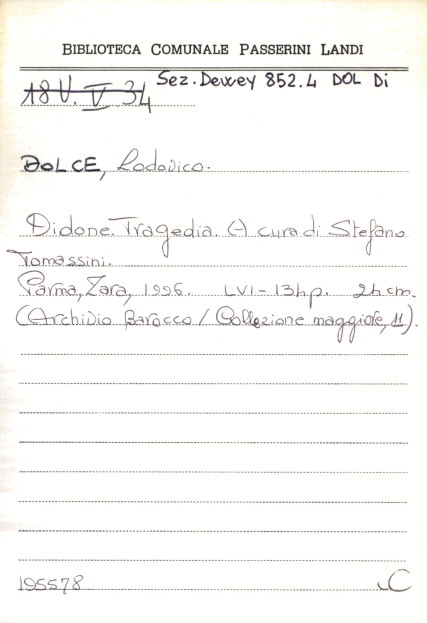 BIBLIOTECA COMUNALE PASSERINI LANDI
Sez. Dewey 852.4 DOL Di
18 U. V 34
DOLCE, Lodovico.
Didone. Tragedia. A cura di Stefano
Tomassini.
Parma, Zara, 1996. LVI-134p. 24cm.
(Archivio Barocco / Collezione maggiore, 11).
195578 C